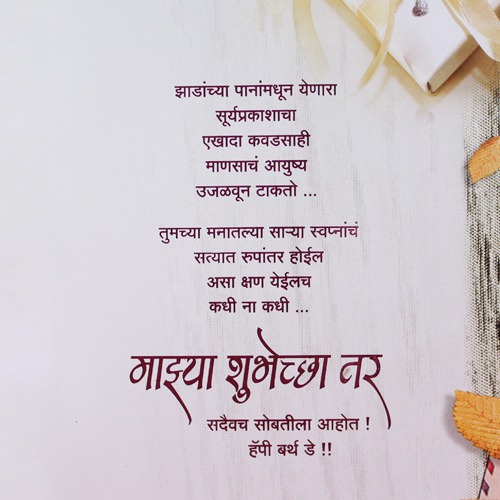 झाडांच्या पानांमधून येणारा
सूर्यप्रकाशाचा
एखादा कवडसाही
माणसाचं आयुष्य
उजळवून टाकतो ...
तुमच्या मनातल्या साऱ्या स्वप्नांचं
सत्यात रुपांतर होईल
असा क्षण येईलच
कधी ना कधी ...
माझ्या शुभेच्छा तर
सदैवच सोबतीला आहोत !
हॅपी बर्थ डे !!